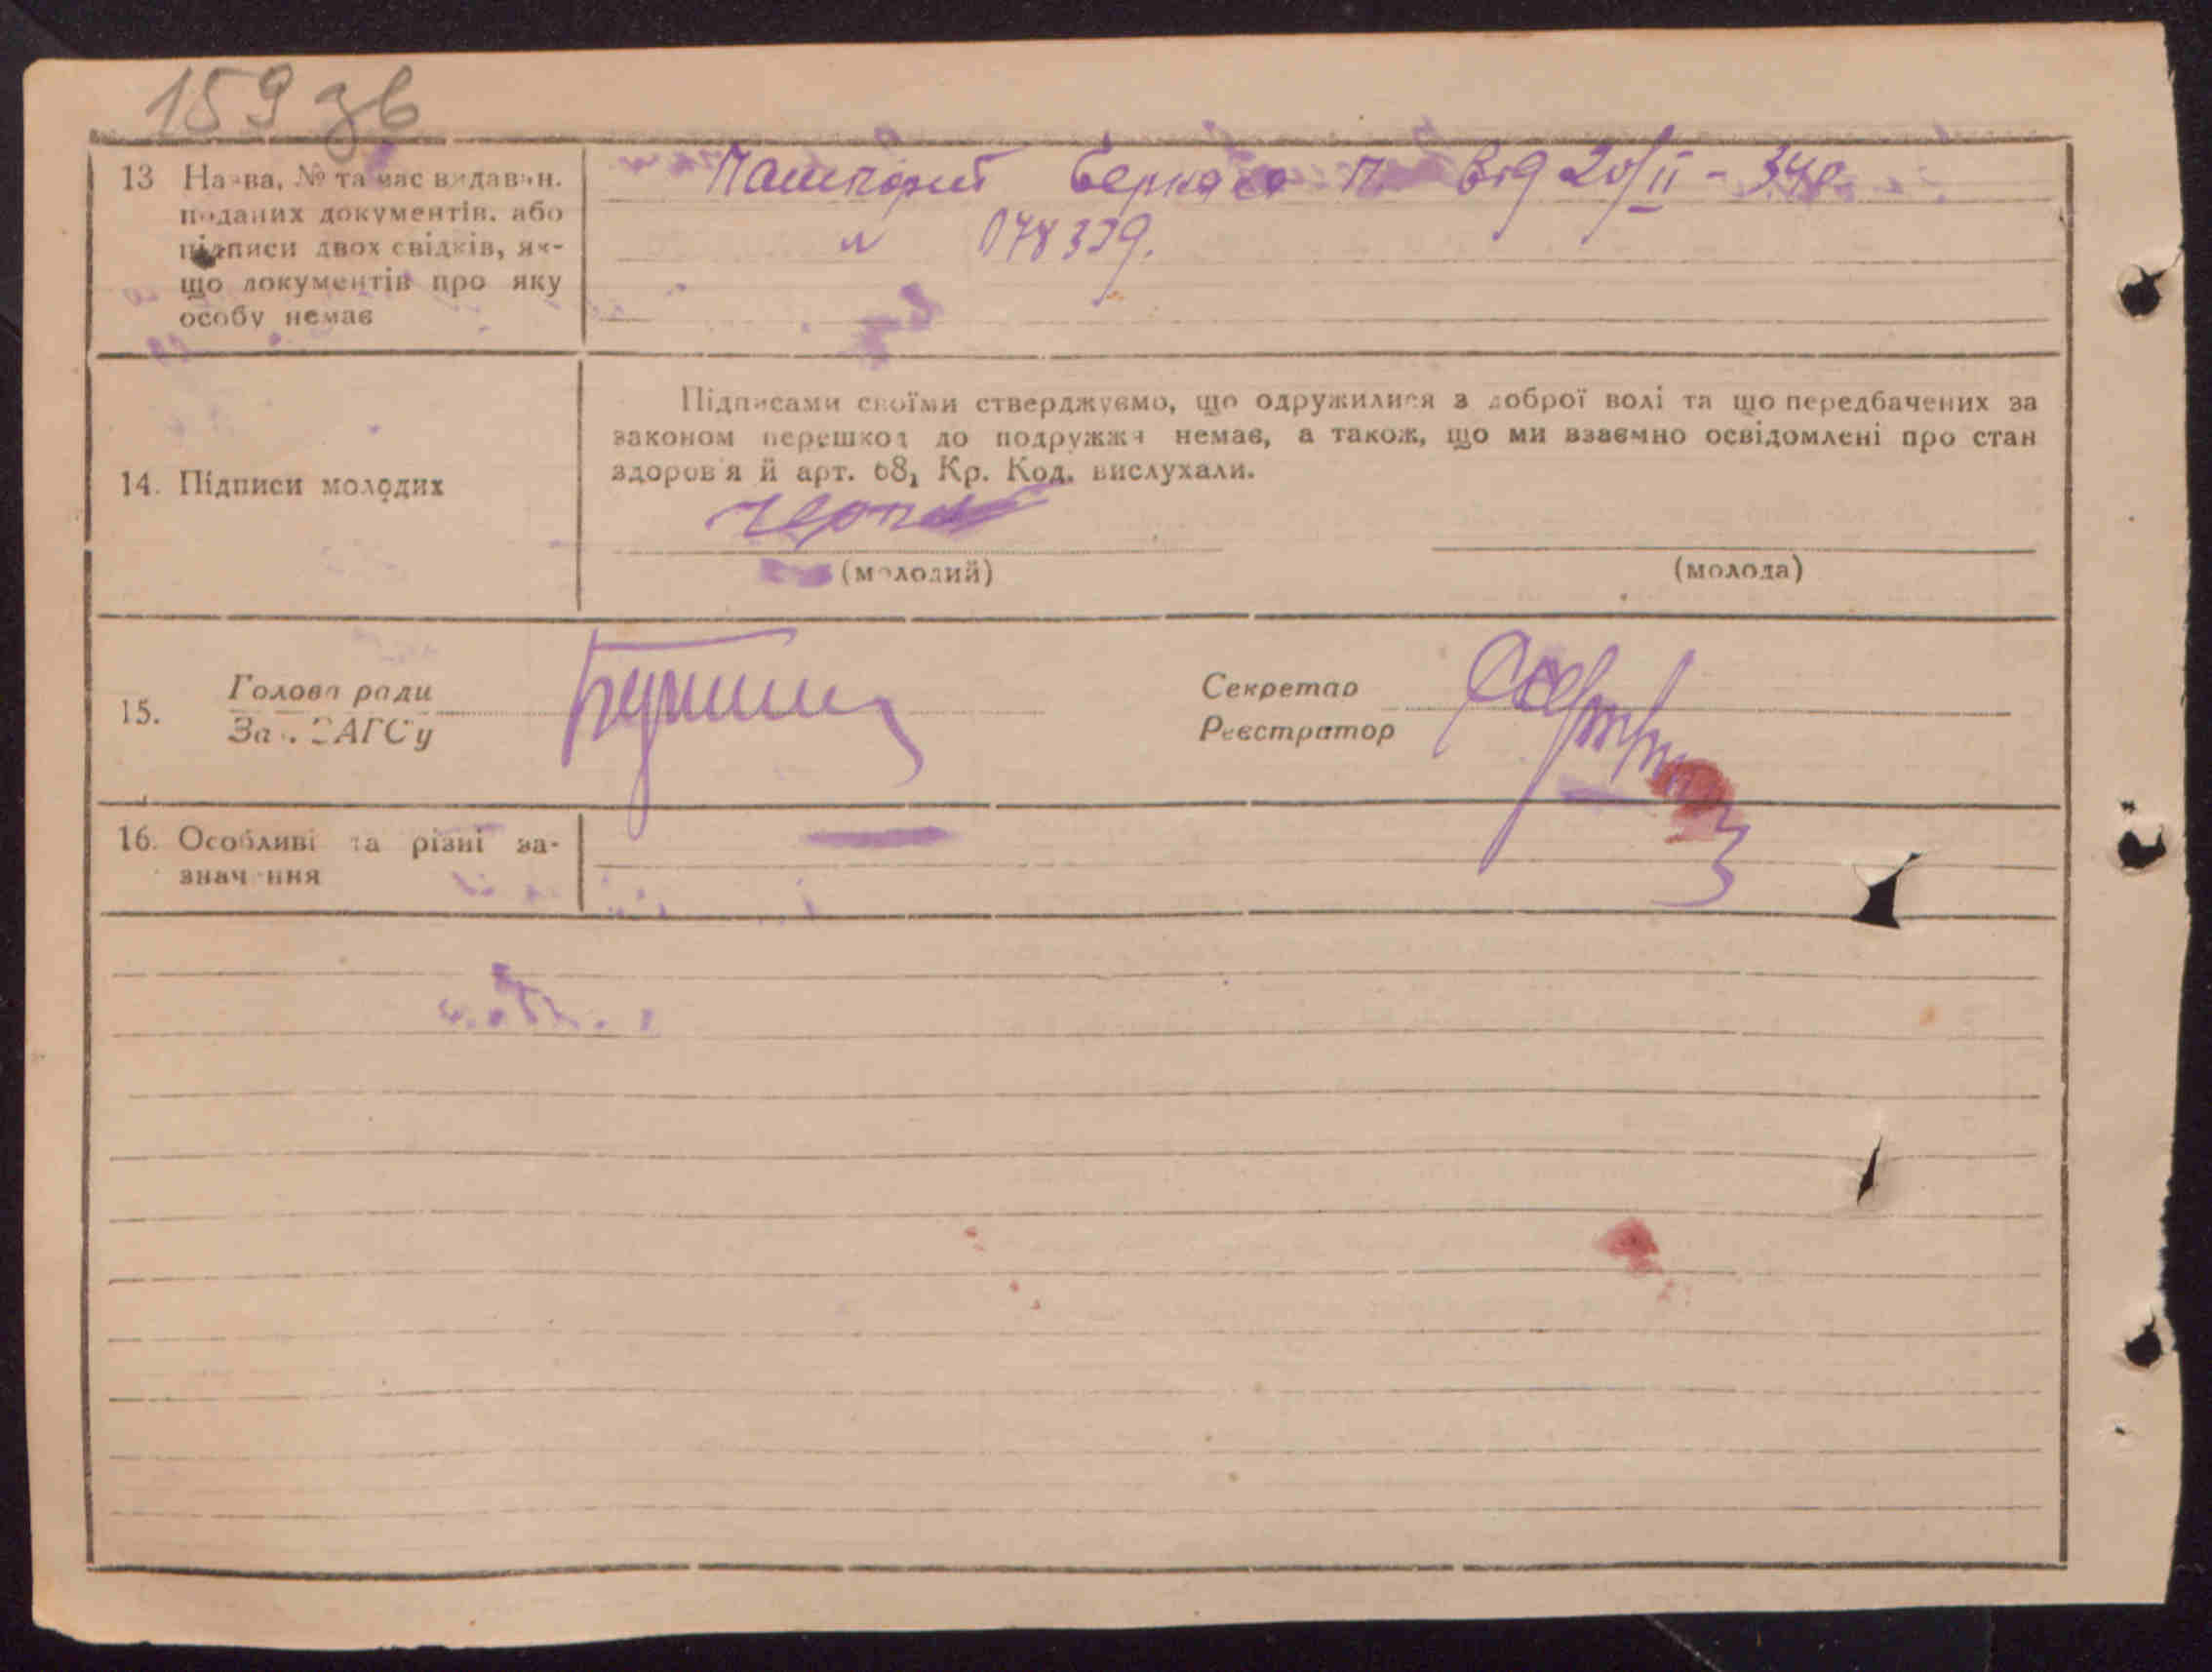 159 зв
13 Назва, № та час видавн.
поданих документів, або
підписи двох свідків, як-
що документів про яку
особу немає
Пашпорт від 20/II - 34 р.
№ 078339.
14. Підписи молодих
Підписами своїми стверджуємо, що одружилися з доброї волі та що передбачених за
законом перешкод до подружжя немає, а також, що ми взаємно освідомлені про стан
здоров'я й арт. 68, Кр. Код. вислухали.
(молодий) (молода)
15. Голова ради Секретар
Зав. ЗАГС'у Реєстратор
16. Особливі та різні за-
значення